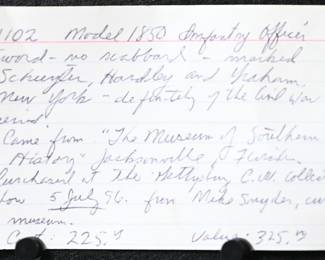 1102 Model 1850 Infantry Officer
sword - no scabbard - marked
Schuyler, Hartley and Graham,
New York - definitely of the Civil War
period.
Came from "The Museum of Southern
History - Jacksonville, Florida.
Purchased at the Gettysburg C.W. collec
show 5 July 96. from Mike Snyder, cur
museum.
Cost: 225.00 Value: 325.00